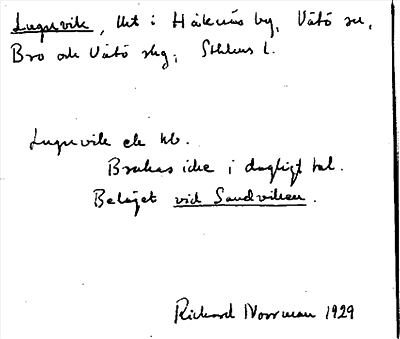 Lugnvik, lht i Håknäs by, Vätö sn,
Bro och Vätö skg, Sthlms l.
Lugnvik ek kb.
Brukas icke i dagligt tal.
Beläget vid Sandviken.
Rickard Norrman 1929